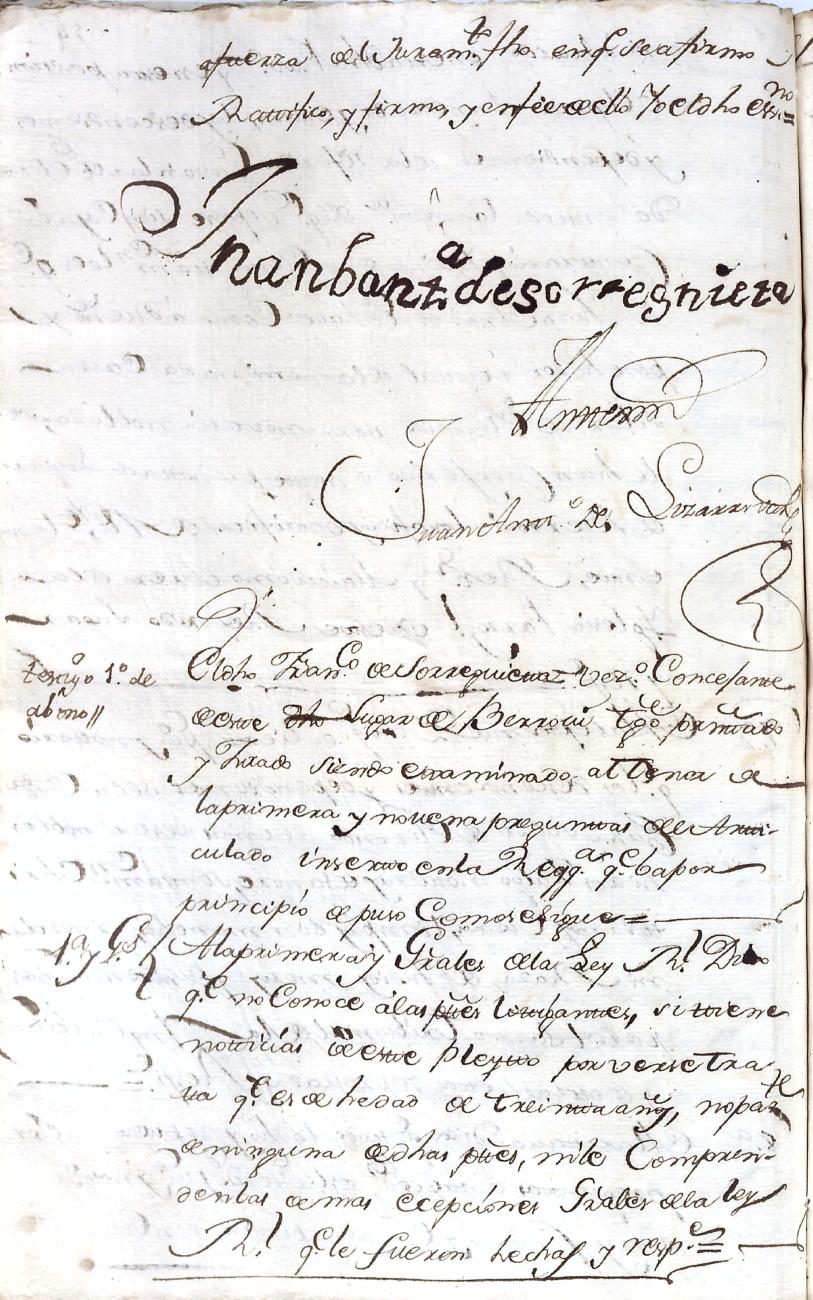 afuerza del Juram.to fho. en q.e se afirmo
Rattifico, y firmo, y enfee de ello Yo el dho ess.no =
Juan banz.a de sorreguieta
Antemi
Juan Antt.o De Lizarri
testigo 1.o de
abono //
El dho Fran.co de Sorreguieta vez.o Concejante
de este dho Lugar de Berrovi tgo. prntado
y Jurado siendo examinado al tenor de
la primera y novena preguntas del Arti-
culado inserto en la Reqq.a q.e ba por
principio depuso Como se sigue =
1.a y G.s
A la primera y Grales de la Ley R.l Dixo
q.e no Conoce a las ptes littigantes, si tiene
notticias de este pleyto por verse tra
ta q.e es de hedad de treinta años, no par.te
de ninguna de dhas ptes, ni le Compren-
den las demas ecepciones Grales de la ley
R.l q.e le fueron hechas y resp.e =